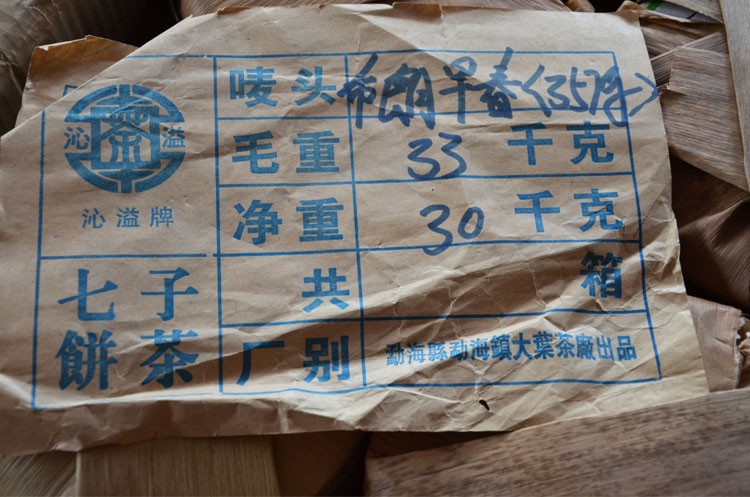 茶
沁 溢
沁溢牌
七子
餅茶
唛头 布朗早春<357克>
毛重 33 千克
净重 30 千克
共 箱
厂别 勐海縣勐海鎮大葉茶廠出品